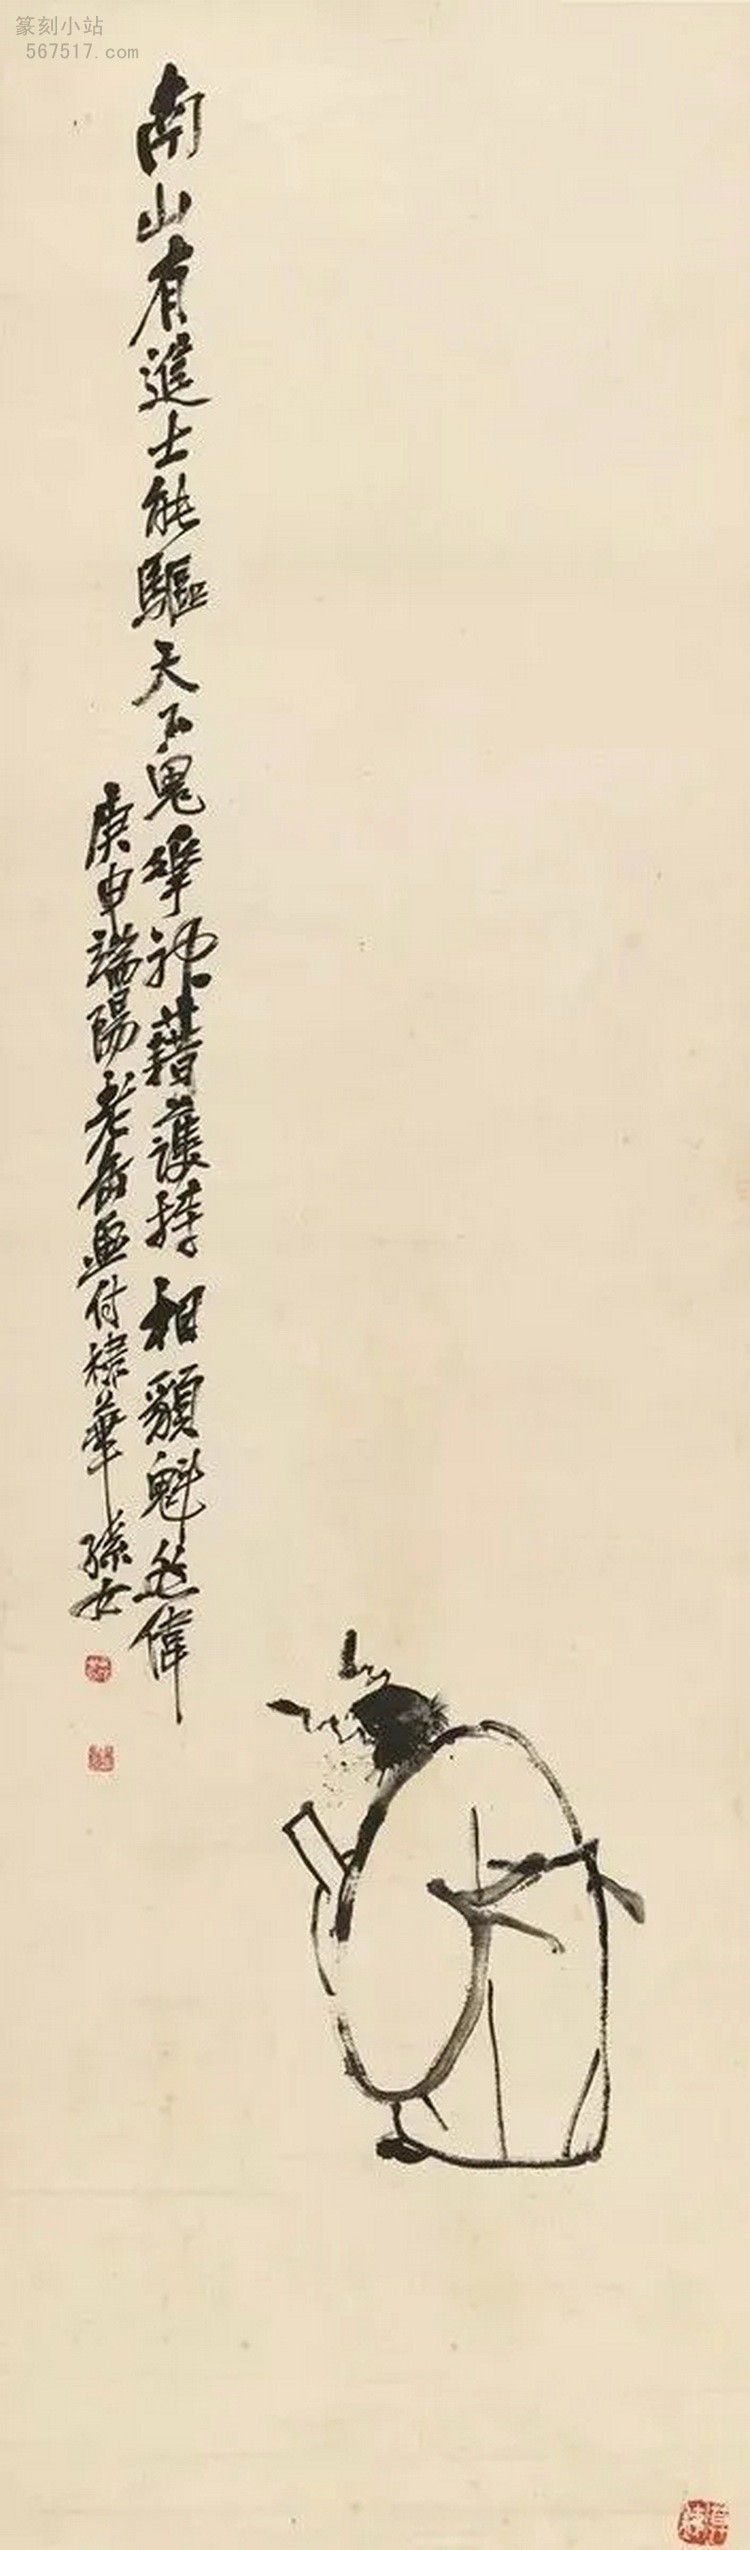 篆刻小站
567517.com
南山有進士能驅天下鬼華神藉護持相貌魁迤偉
庚申端陽老缶畫付棣華孫女